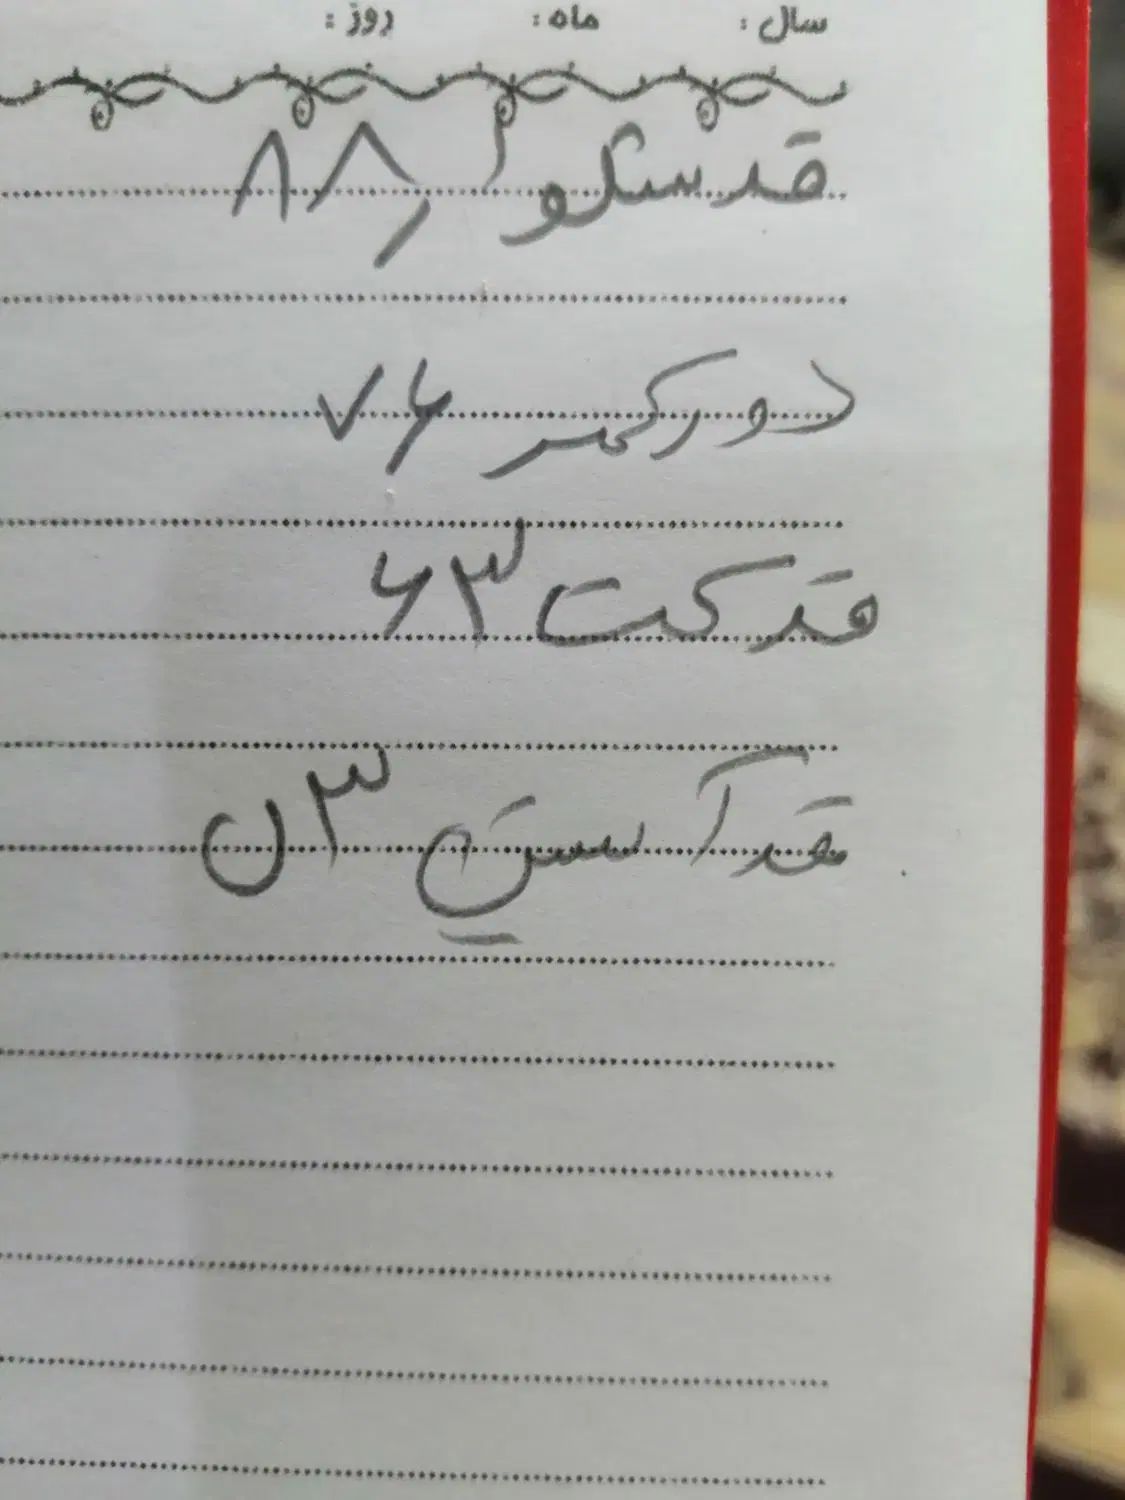 سال: ماه: روز:
قد شلوار ۸۸
دور کمر ۷۶
قد کت ۶۳
قد آستین ۵۳